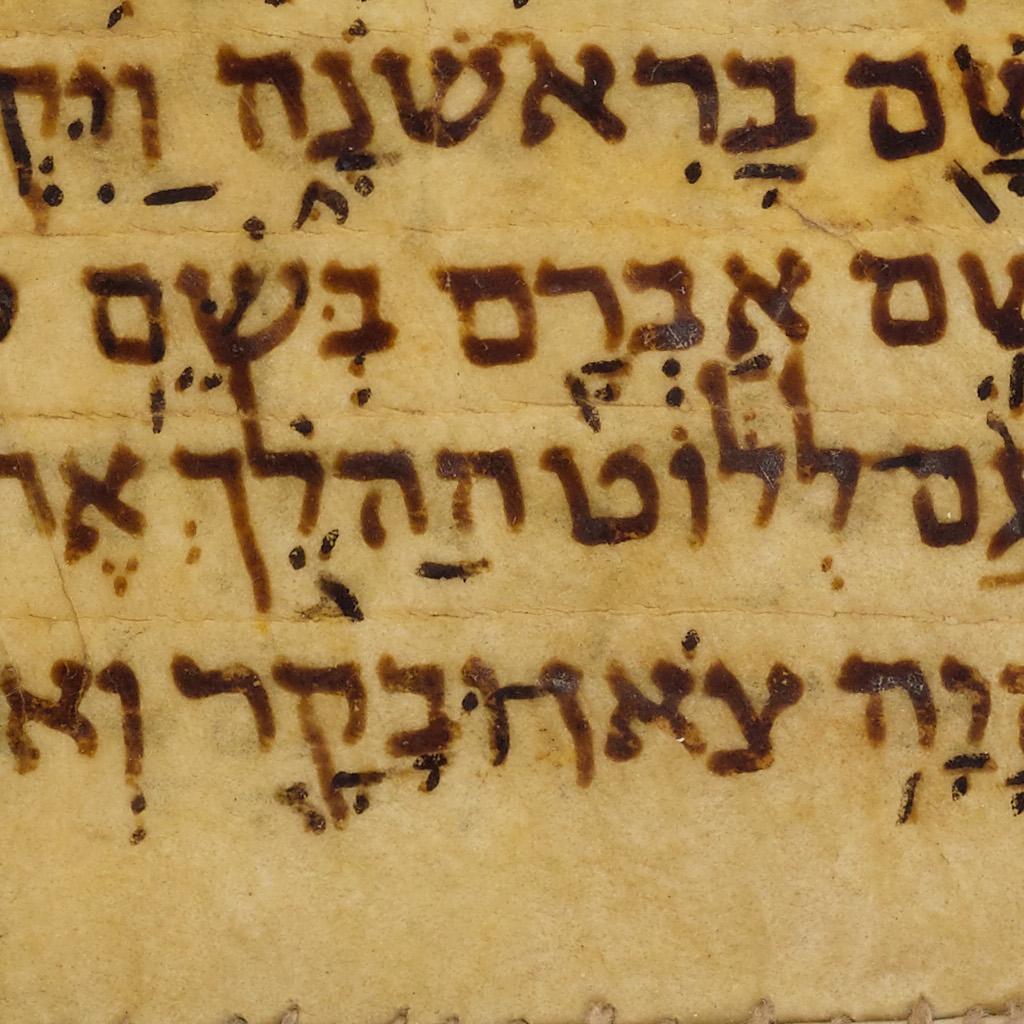 שָׁם בָּרִאשֹׁנָה וַיִּקְ
שָׁם אַבְרָם בְּשֵׁם
גַם לְלוֹט הַהֹלֵךְ אֶת
הָיָה צֹאן וּבָקָר וְא